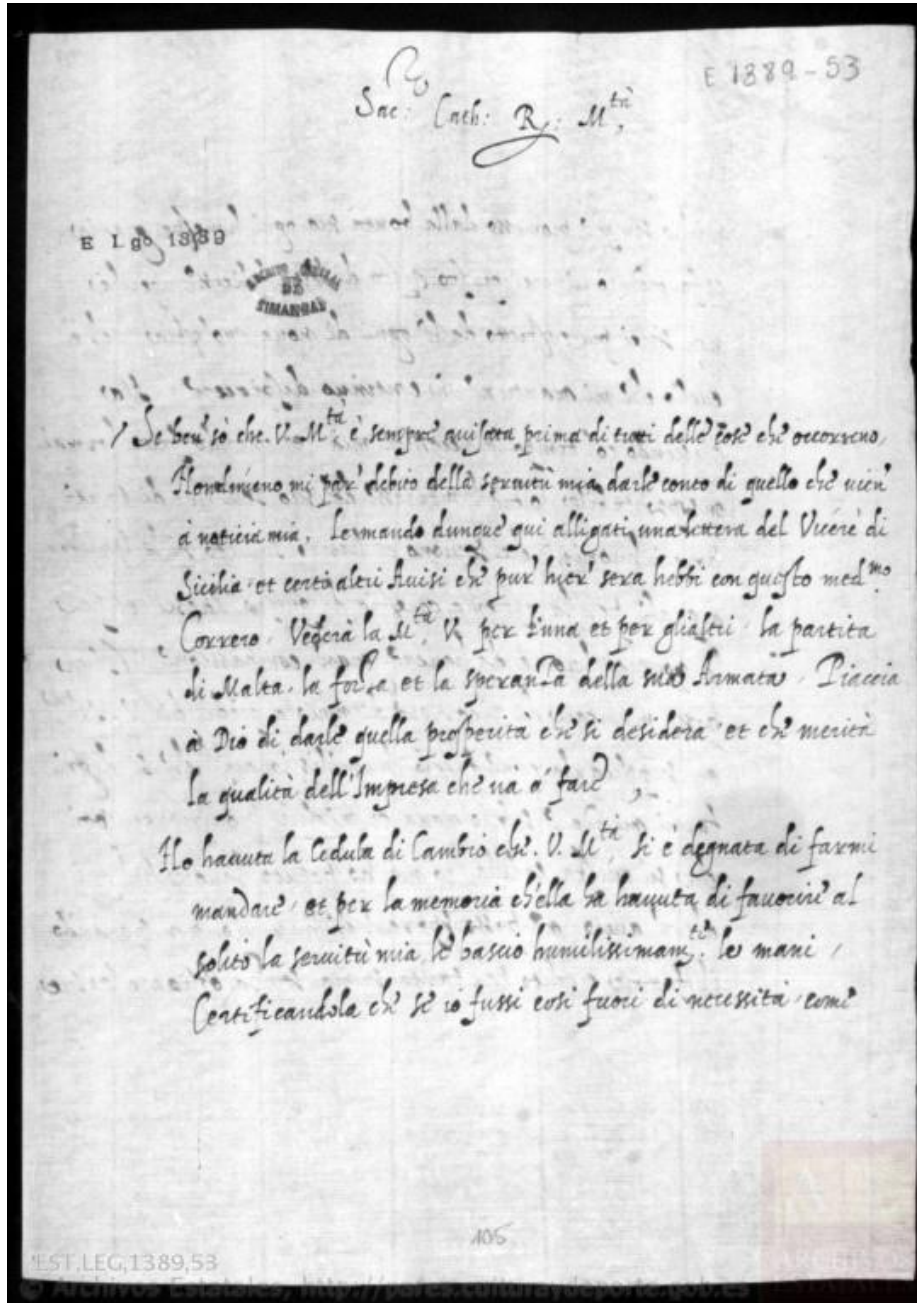 E 1389-53
Sac: Cath: R: M.tà
E Lgo 1389
ARCHIVO GENERAL
DE
SIMANCAS
Se ben sò che V. M.tà è sempre avisata prima di tutti delle cose che occorreno,
Nondimeno mi par' debito della servitù mia darle conto di quello che vien
à noticia mia. Le mando dunque qui alligati una lettera del Vicerè di
Sicilia et certi altri Avisi che pur' hier' sera hebbi con questo med.mo
Correro. Vederà la M.tà V. per l'una et per gli altri la partita
di Malta, la forza et la speranza della sua Armata. Piaccia
à Dio di darle quella prosperità che si desidera et che merita
la qualità dell'Impresa che va à fare,
Ho havuta la Cedula di Cambio che V. M.tà si è degnata di farmi
mandare et per la memoria ch'ella ha havuta di favorire al
solito la servitù mia le bascio humilissimam.te le mani,
Certificandola che se io fussi così fuori di necessità come
105
EST,LEG,1389,53
© Archivos Estatales, http://pares.culturaydeporte.gob.es